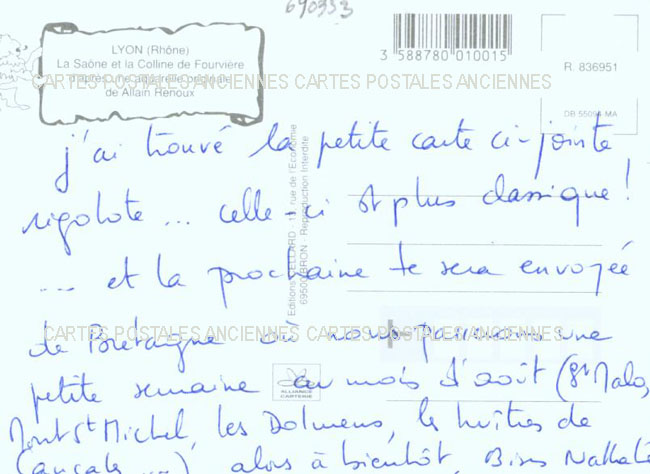 690333
LYON (Rhône)
La Saône et la Colline de Fourvière
d'après une aquarelle originale
de Allain Renoux
3 588780 010015
R. 836951
DB 55094 MA
CARTES POSTALES ANCIENNES CARTES POSTALES ANCIENNES
j'ai trouvé la petite carte ci-jointe
rigolote ... celle-ci est plus classique !
... et la prochaine te sera envoyée
de Bretagne où nous passons une
petite semaine au mois d'août (St Malo,
Mont St Michel, les Dolmens, les huîtres de
Cancale ...) alors à bientôt, Bises Nathalie
CARTES POSTALES ANCIENNES CARTES POSTALES ANCIENNES
rue de l'Economie
69500 BRON - Reproduction Interdite
ALLIANCE
CARTERIE